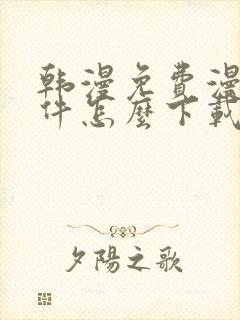 韩漫免費漫
件怎麼下載
夕陽之歌